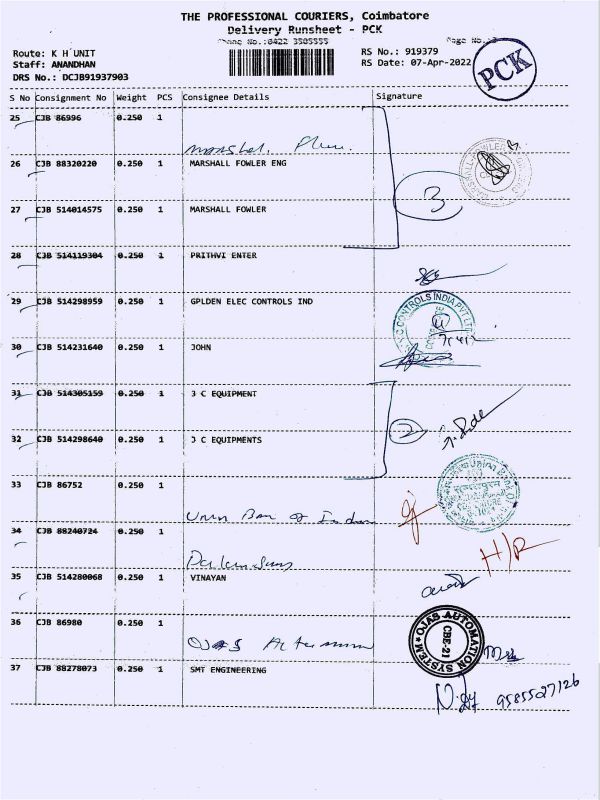 THE PROFESSIONAL COURIERS, Coimbatore
Delivery Runsheet - PCK
Phone No.:0422 3505555
Route: K H UNIT RS No.: 919379
Staff: ANANDHAN RS Date: 07-Apr-2022
DRS No.: DCJB91937903
PCK
S No Consignment No Weight PCS Consignee Details Signature
25 CJB 86996 0.250 1
26 CJB 88320220 0.250 1 MARSHALL FOWLER ENG
3
27 CJB 514014575 0.250 1 MARSHALL FOWLER
28 CJB 514119304 0.250 1 PRITHVI ENTER
29 CJB 514298959 0.250 1 GPLDEN ELEC CONTROLS IND
C CONTROLS INDIA PVT LTD
30 CJB 514231640 0.250 1 JOHN
31 CJB 514305159 0.250 1 J C EQUIPMENT
2
32 CJB 514298640 0.250 1 J C EQUIPMENTS
33 CJB 86752 0.250 1
Union Ban of India
34 CJB 88240724 0.250 1
H/R
35 CJB 514280068 0.250 1 VINAYAN
36 CJB 86980 0.250 1
OJAS AUTOMATION SYSTEM
CBE-21
37 CJB 88278073 0.250 1 SMT ENGINEERING
9585527126